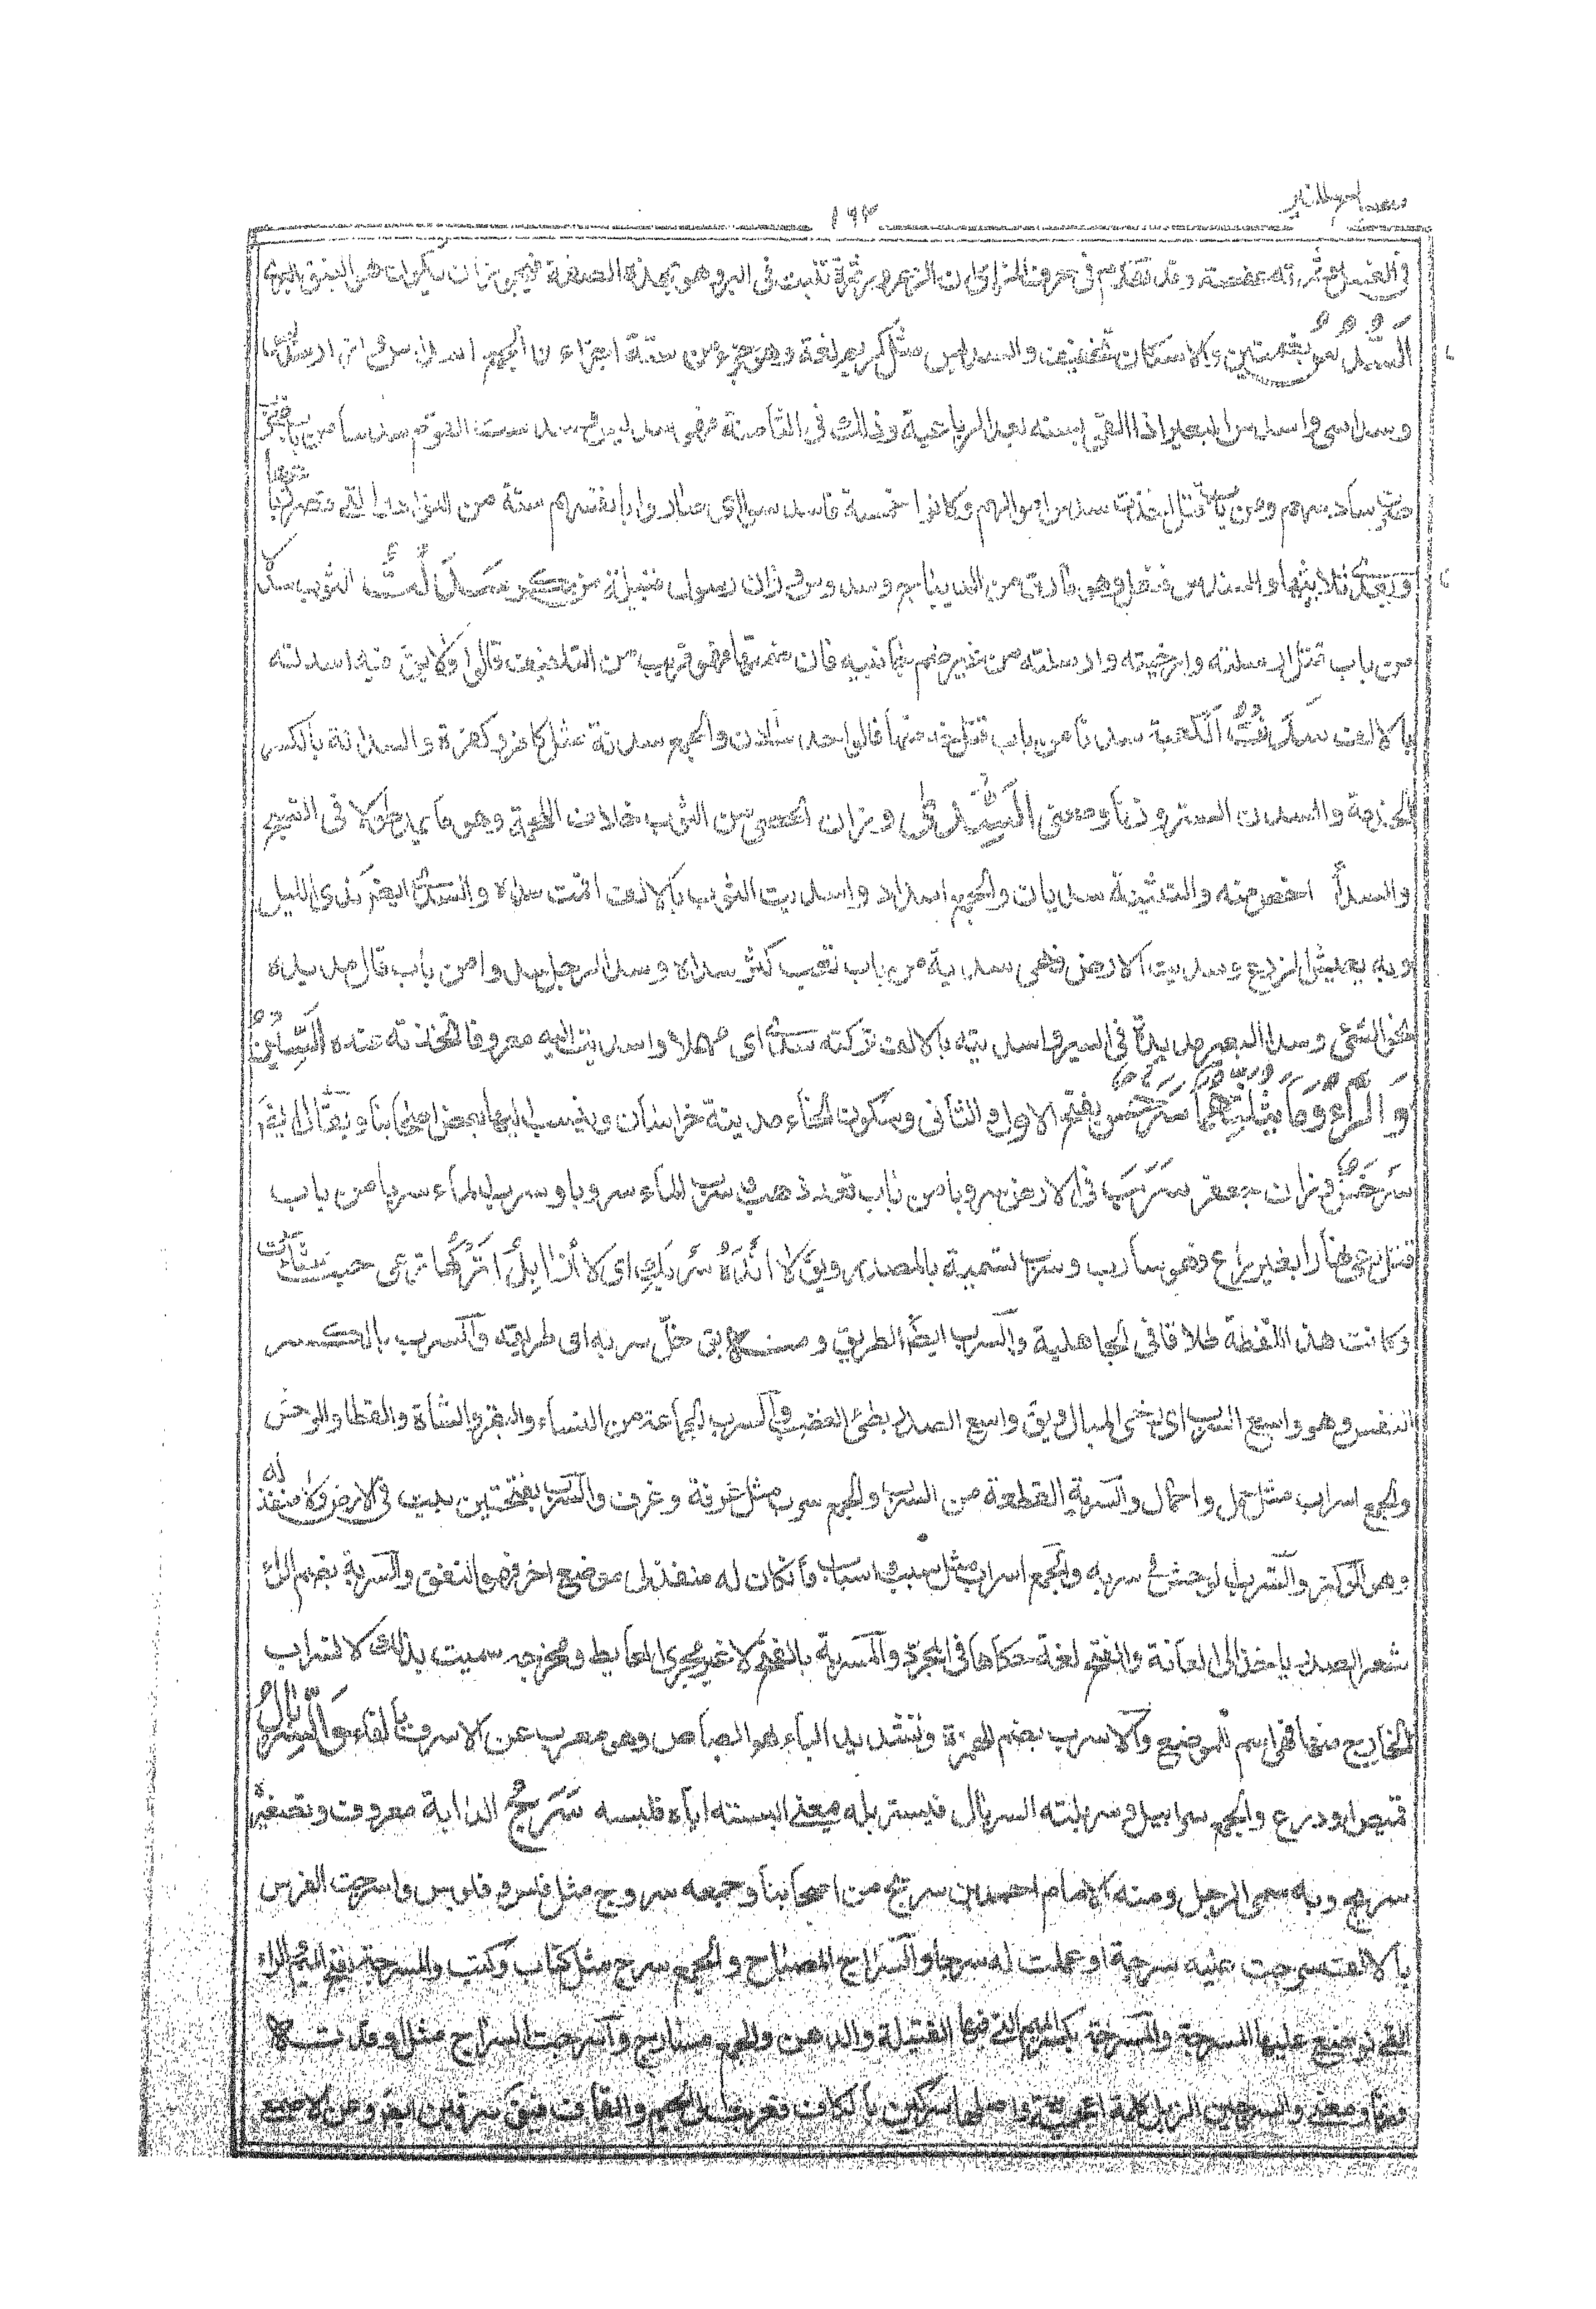 مصباح المنير
١٩٣
في الغسل وثمرته عفصة وقد تقدم في حرف الزاي ان الزعرور ثمرة تنبت في البر وهو بهذه الصفة فيجوز ان يكون هو النبق البري
السُّدُسُ بضمتين والاسكان تخفيف والسديس مثل كريم لغة وهو جزء من ستة اجزاء والجمع اسداس وازار سديس
وسداسي واسدس البعير اذا القى سنه بعد الرباعية وذلك في الثامنة فهو سديس وسدست القوم سدسا من باب ضرب
صرت سادسهم ومن باب قتل اخذت سدس اموالهم وكانوا خمسة فاسدسوا اي صاروا بانفسهم ستة من النوادر التي قصر رباعيها
وتعدى ثلاثيها والسندس فنعل وهو مارق من الديباج وسدوس وزان رسول قبيلة من بكر سَدَلْتُ الثوب سدلا
من باب قتل ارسلته وارخيته وارسلته من غير ضم جانبيه فان ضمتهما فهو قريب من التلفف قالوا ولا يق فيه اسدلته
بالالف سَدَنْتُ الكعبة سدنا من باب قتل خدمتها فالواحد سادن والجمع سدنة مثل كافر وكفرة والسدانة بالكسر
الخدمة والسدن الستر وزنا ومعنى السَّدَى وزان الحصى من الثوب خلاف اللحمة وهو ما يمد طولا في النسج
والسداة اخص منه والتثنية سديان والجمع اسداء واسديت الثوب بالالف اقمت سداه والسدى ايضم ندى الليل
وبه يعيش الزرع وسديت الارض فهي سدية من باب تعب كثر سداها وسدا الرجل سدوا من باب قال مد يده
نحو الشئ وسدا البعير مد يده في السير واسديته بالالف تركته سدى اي مهملا واسديت اليه معروفا اتخذته عنده السِّينُ
وَالرَّاءُ وَمَا يَثْلِثُهُمَا سَرَخْسُ بفتح الاول والثاني وسكون الخاء مدينة خراسان وينسب اليها بعض اصحابنا ويقال ايضم
سَرْخَسُ وزان جعفر سَرَبَ في الارض سروبا من باب قعد ذهب وسرب الماء سروبا وسرب المال سربا من باب
قتل رعى نهارا بغير راع فهو سارب وسرب تسمية بالمصدر ويق لا اَنْدَهُ سَرْبَكِ اي لا ارد ابلك اتركها ترعى حيث شاءت
وكانت هذه اللفظة طلاقا في الجاهلية والسرب ايضم الطريق ومنه يق خل سربه اي طريقه والسرب بالكسر
النفس وهو واسع السرب اي رخي البال ويق واسع الصدر بطئ الغضب والسرب الجماعة من النساء والبقر والشاة والقطا والوحش
والجمع اسراب مثل حمل واحمال والسربة القطعة من السرب والجمع سرب مثل غرفة وغرف والسرب بفتحتين بيت في الارض لا منفذ له
وهو الوكر والسرب الوحش في سربه والجمع اسراب مثل سبب واسباب فان كان له منفذ الى موضع اخر فهو النفق والمسربة بضم الراء
شعر الصدر ياخذ الى العانة والفتح لغة حكاها في المجرد والمسربة بالفتح لا غير مجرى الغايط ومخرجه سميت بذلك لانسراب
الخارج منها فهي اسم للموضع والاسرب بضم الهمزة وتشديد الباء هو الرصاص وهو معرب عن الاسرف بالفاء وَالسِّرْبَالُ
قميص او درع والجمع سرابيل وسربلته السربال فتسربله بمعنى البسته اياه فلبسه سَرْجُ الدابة معروف وتصغيره
سريج وبه سمى الرجل ومنه الامام احمد بن سريج من اصحابنا وجمعه سروج مثل فلس وفلوس واسرجت الفرس
بالالف شددت عليه سرجه او عملت له سرجا والسراج المصباح والجمع سرج مثل كتاب وكتب والمسرجة بفتح الميم والراء
التي توضع عليها المسرجة والمسرجة بكسر الميم التي فيها الفتيلة والدهن والجمع مسارج واسرجت السراج مثل اوقدته
وزنا ومعنى والسرجين الزبل كلمة اعجمية واصلها سركين بالكاف فعربت الى الجيم والقاف فيق سرقين ايضم وعن الاصمعي